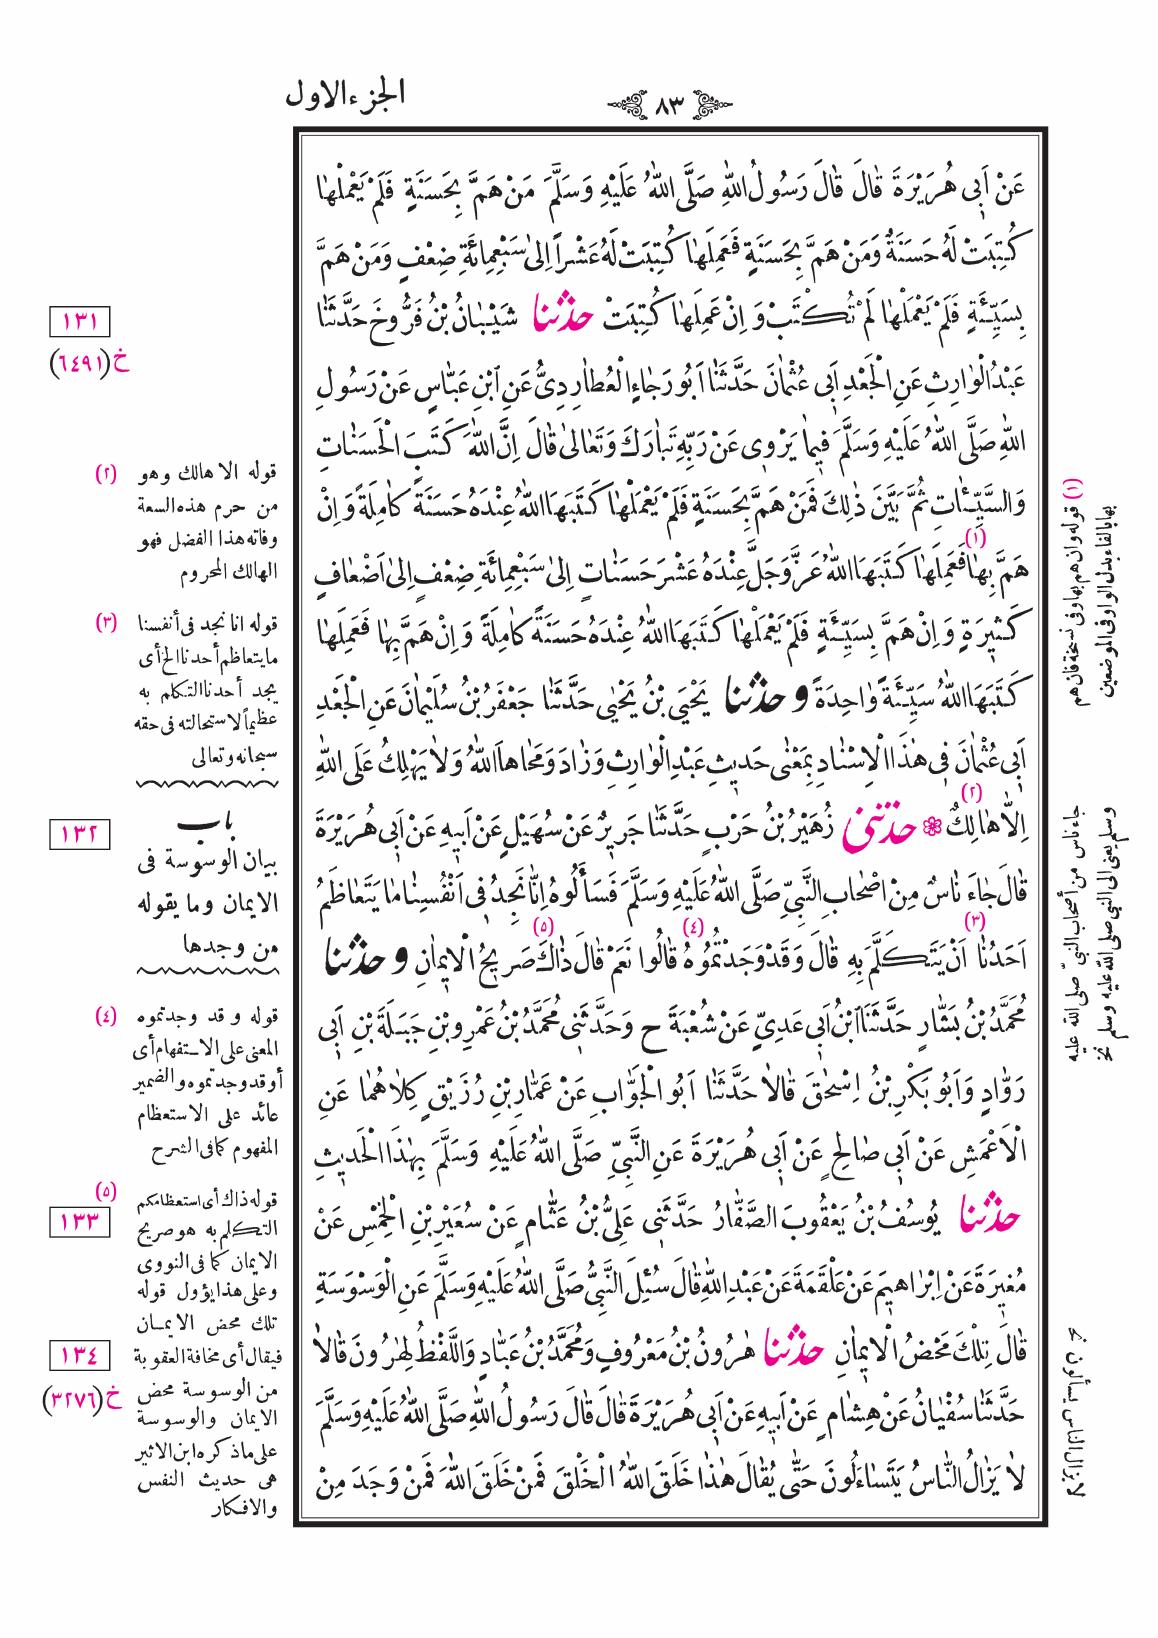 الجزء الاول
٨٣
عَنْ اَبِى هُرَيْرَةَ قَالَ قَالَ رَسُولُ اللهِ صَلَّى اللهُ عَلَيْهِ وَسَلَّمَ مَنْ هَمَّ بِحَسَنَةٍ فَلَمْ يَعْمَلْهَا
كُتِبَتْ لَهُ حَسَنَةً وَمَنْ هَمَّ بِحَسَنَةٍ فَعَمِلَهَا كُتِبَتْ لَهُ عَشْراً اِلىٰ سَبْعِمِائَةِ ضِعْفٍ وَمَنْ هَمَّ
بِسَيِّئَةٍ فَلَمْ يَعْمَلْهَا لَمْ تُكْتَبْ وَ اِنْ عَمِلَهَا كُتِبَتْ حدثنا شَيْبَانُ بْنُ فَرُّوخَ حَدَّثَنَا
عَبْدُ الْوَارِثِ عَنِ الْجَعْدِ اَبِى عُثْمَانَ حَدَّثَنَا اَبُو رَجَاءٍ الْعُطَارِدِىُّ عَنِ ابْنِ عَبَّاسٍ عَنْ رَسُولِ
اللهِ صَلَّى اللهُ عَلَيْهِ وَسَلَّمَ فِيمَا يَرْوِى عَنْ رَبِّهِ تَبَارَكَ وَتَعَالىٰ قَالَ اِنَّ اللهَ كَتَبَ الْحَسَنَاتِ
وَالسَّيِّئَاتِ ثُمَّ بَيَّنَ ذٰلِكَ فَمَنْ هَمَّ بِحَسَنَةٍ فَلَمْ يَعْمَلْهَا كَتَبَهَا اللهُ عِنْدَهُ حَسَنَةً كَامِلَةً وَ اِنْ
هَمَّ بِهَا (١) فَعَمِلَهَا كَتَبَهَا اللهُ عَزَّ وَجَلَّ عِنْدَهُ عَشْرَ حَسَنَاتٍ اِلىٰ سَبْعِمِائَةِ ضِعْفٍ اِلىٰ اَضْعَافٍ
كَثِيرَةٍ وَ اِنْ هَمَّ بِسَيِّئَةٍ فَلَمْ يَعْمَلْهَا كَتَبَهَا اللهُ عِنْدَهُ حَسَنَةً كَامِلَةً وَ اِنْ هَمَّ بِهَا فَعَمِلَهَا
كَتَبَهَا اللهُ سَيِّئَةً وَاحِدَةً و حدثنا يَحْيَى بْنُ يَحْيٰى حَدَّثَنَا جَعْفَرُ بْنُ سُلَيْمَانَ عَنِ الْجَعْدِ
اَبِى عُثْمَانَ فِى هٰذَا الْاِسْنَادِ بِمَعْنٰى حَدِيثِ عَبْدِ الْوَارِثِ وَزَادَ وَمَحَاهَا اللهُ وَلَا يَهْلِكُ عَلَى اللهِ
اِلَّا هَالِكٌ (٢) حدثنى زُهَيْرُ بْنُ حَرْبٍ حَدَّثَنَا جَرِيرٌ عَنْ سُهَيْلٍ عَنْ اَبِيهِ عَنْ اَبِى هُرَيْرَةَ
قَالَ جَاءَ نَاسٌ مِنْ اَصْحَابِ النَّبِىِّ صَلَّى اللهُ عَلَيْهِ وَسَلَّمَ فَسَأَلُوهُ اِنَّا نَجِدُ فِى اَنْفُسِنَا مَا يَتَعَاظَمُ
اَحَدُنَا (٣) اَنْ يَتَكَلَّمَ بِهِ قَالَ وَقَدْ وَجَدْتُمُوهُ (٤) قَالُوا نَعَمْ قَالَ ذَاكَ (٥) صَرِيحُ الْايمَانِ و حدثنا
مُحَمَّدُ بْنُ بَشَّارٍ حَدَّثَنَا ابْنُ اَبِى عَدِىٍّ عَنْ شُعْبَةَ ح وَحَدَّثَنِى مُحَمَّدُ بْنُ عَمْرِو بْنِ جَبَلَةَ بْنِ اَبِى
رَوَّادٍ وَ اَبُو بَكْرِ بْنُ اِسْحٰقَ قَالَا حَدَّثَنَا اَبُو الْجَوَّابِ عَنْ عَمَّارِ بْنِ رُزَيْقٍ كِلَاهُمَا عَنِ
الْاَعْمَشِ عَنْ اَبِى صَالِحٍ عَنْ اَبِى هُرَيْرَةَ عَنِ النَّبِىِّ صَلَّى اللهُ عَلَيْهِ وَسَلَّمَ بِهٰذَا الْحَدِيثِ
حدثنا يُوسُفُ بْنُ يَعْقُوبَ الصَّفَّارُ حَدَّثَنِى عَلِىُّ بْنُ عَثَّامٍ عَنْ سُعَيْرِ بْنِ الْخِمْسِ عَنْ
مُغِيرَةَ عَنْ اِبْرَاهِيمَ عَنْ عَلْقَمَةَ عَنْ عَبْدِ اللهِ قَالَ سُئِلَ النَّبِىُّ صَلَّى اللهُ عَلَيْهِ وَسَلَّمَ عَنِ الْوَسْوَسَةِ
قَالَ تِلْكَ مَحْضُ الْايمَانِ حدثنا هٰرُونُ بْنُ مَعْرُوفٍ وَ مُحَمَّدُ بْنُ عَبَّادٍ وَاللَّفْظُ لِهٰرُونَ قَالَا
حَدَّثَنَا سُفْيَانُ عَنْ هِشَامٍ عَنْ اَبِيهِ عَنْ اَبِى هُرَيْرَةَ قَالَ قَالَ رَسُولُ اللهِ صَلَّى اللهُ عَلَيْهِ وَسَلَّمَ
لَا يَزَالُ النَّاسُ يَتَسَاءَلُونَ حَتَّى يُقَالَ هٰذَا خَلَقَ اللهُ الْخَلْقَ فَمَنْ خَلَقَ اللهَ فَمَنْ وَجَدَ مِنْ
(١) قوله وان هم بها وفى نسخة فان هم
بها بالفاء بدل الواو فى الموضعين
جاء ناس من أصحاب النبىّ صلى الله عليه
وسلم يعنى الى النبى صلى الله عليه وسلم نخ
لا يزال الناس يسألون نخ
١٣١
خ (٦٤٩١)
(٢) قوله الا هالك وهو
من حرم هذه السعة
وفاته هذا الفضل فهو
الهالك المحروم
(٣) قوله انا نجد فى أنفسنا
ما يتعاظم أحدنا الخ أى
يجد أحدنا التكلم به
عظيماً لاستحالته فى حقه
سبحانه وتعالى
١٣٢
باب
بيان الوسوسة فى
الايمان وما يقوله
من وجدها
(٤) قوله و قد وجدتموه
المعنى على الاستفهام أى
أوقد وجدتموه والضمير
عائد على الاستعظام
المفهوم كما فى الشرح
(٥) قوله ذاك أى استعظامكم
التكلم به هو صريح
الايمان كما فى النووى
وعلى هذا يؤول قوله
تلك محض الايمان
فيقال أى مخافة العقوبة
من الوسوسة محض
الايمان والوسوسة
على ما ذكره ابن الاثير
هى حديث النفس
والافكار
١٣٣
١٣٤
خ (٣٢٧٦)